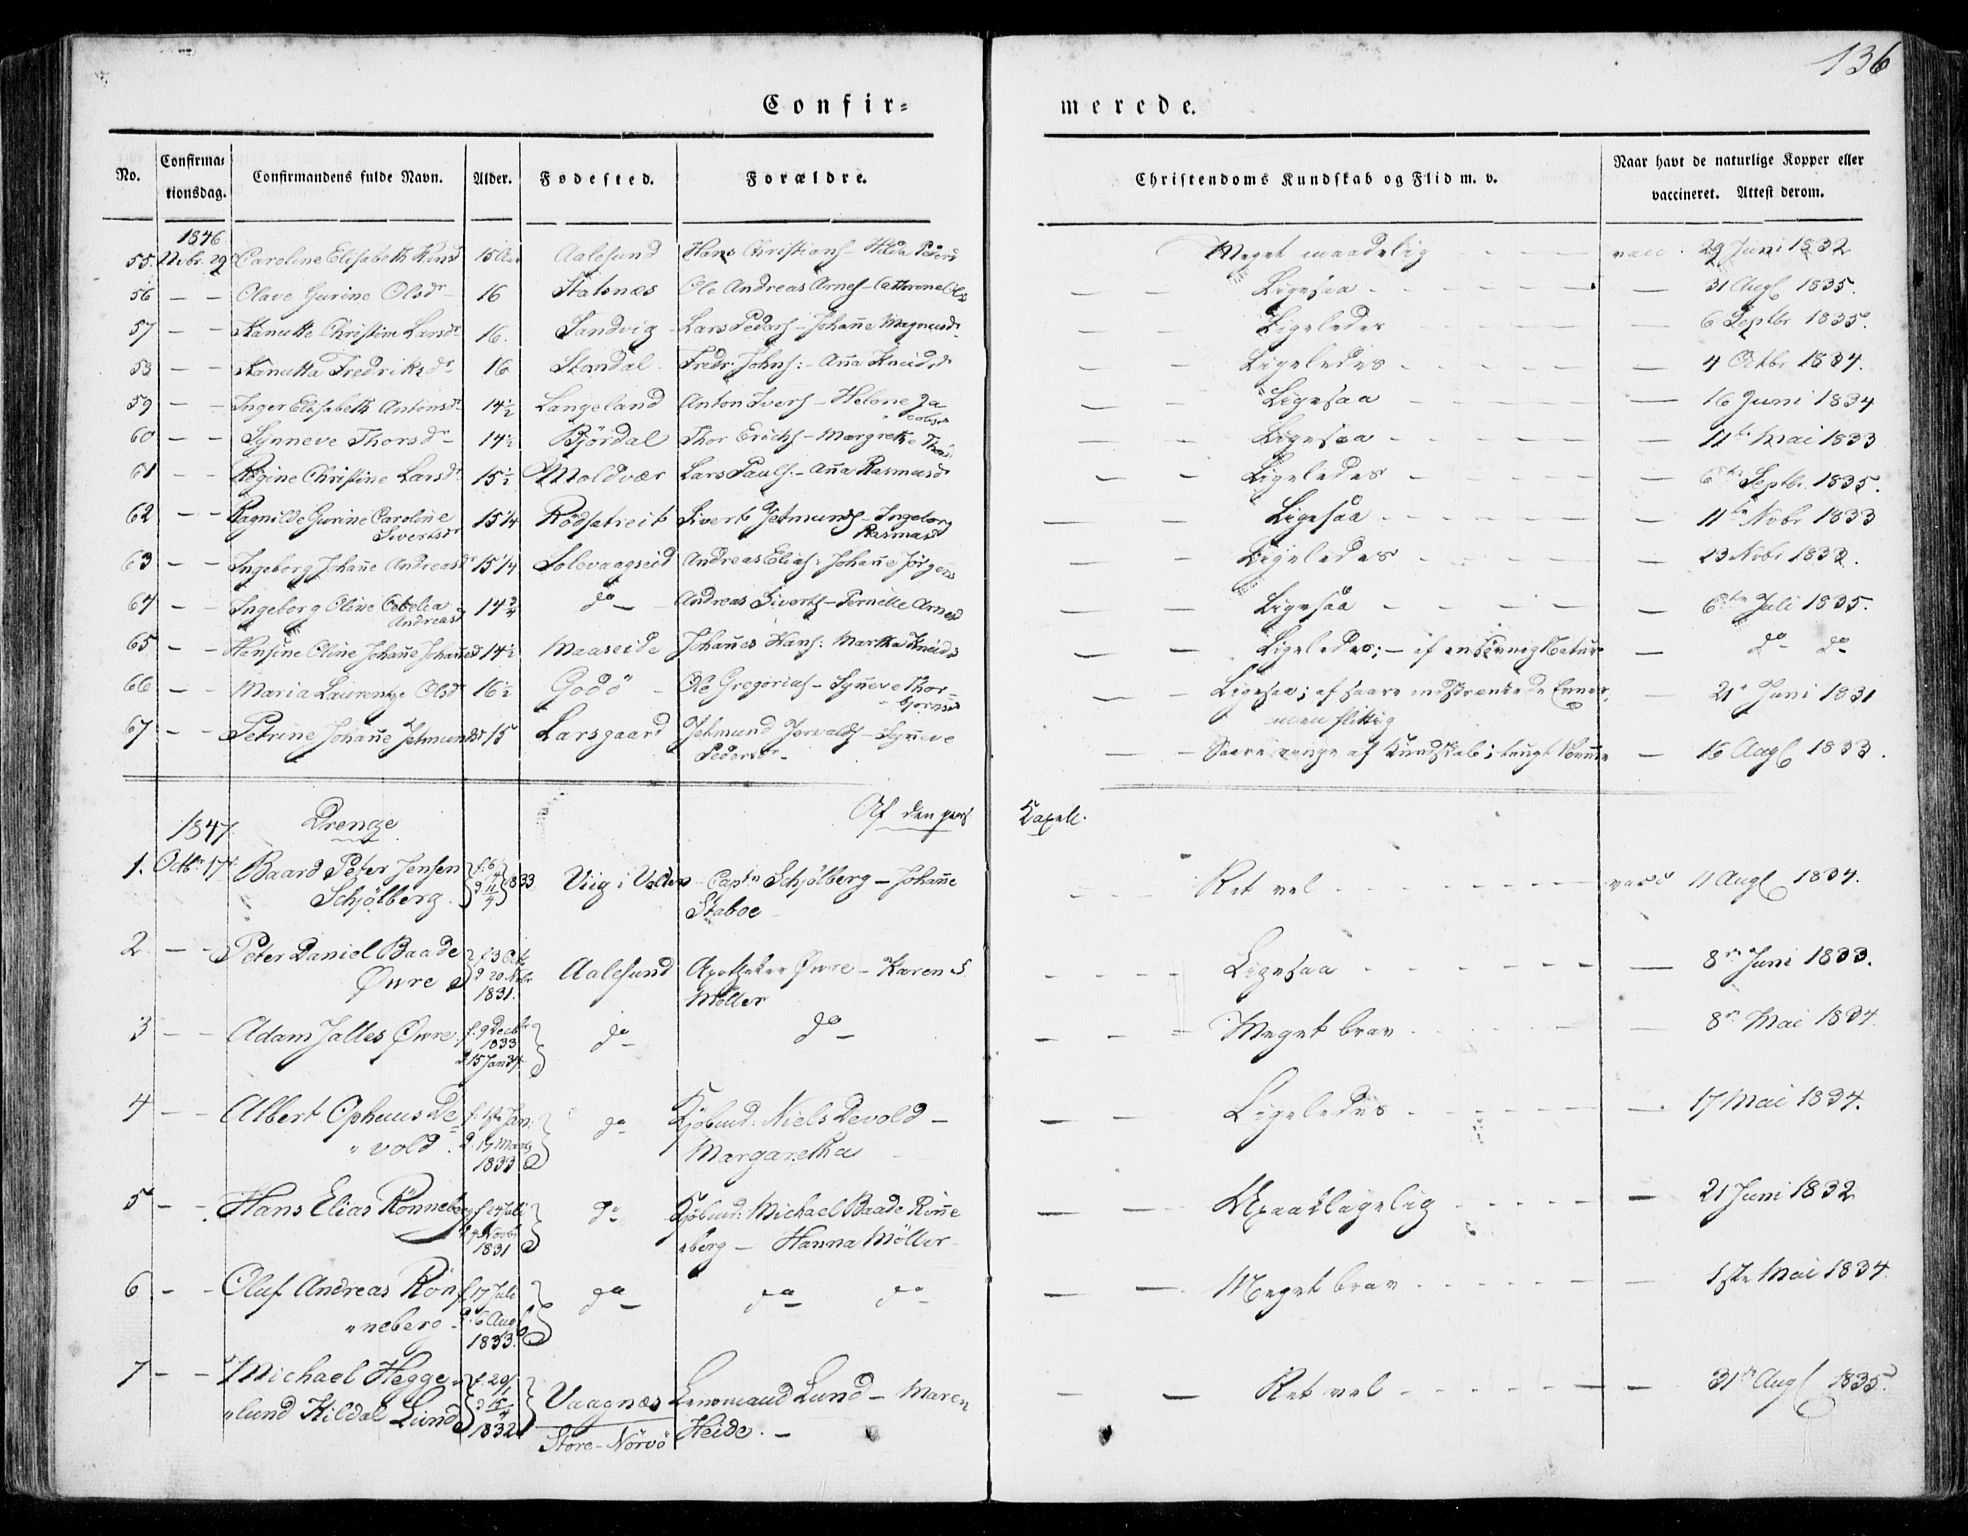 136
Confir= merede.
No. Confirma=tionsdag. Confirmandens fulde Navn. Alder. Fødested. Forældre. Christendoms Kundskab og Flid m. v. Naar havt de naturlige Kopper eller vaccineret. Attest derom.
1846
55. Novbr 29 Caroline Elisabeth 15 Aalesund Hans Christians - Meget maadelig - - - vacc. 29 Juni 1832
56 - - Olave Gurine Olsdr 16 Ole Andreas Arnes - Cathrine Ols - - Ligesaa - - - 31 Aug 1835.
57 - - Kanutte Christine Larsdr 16. Sandvig Lars Peders - Johañe Magnusdr - - Ligeledes - - - 6 Septbr 1835.
58 - - Kanutta Fredriksdr 16 Standal Fredr: Johns: - Aña Kneidsdr - - Ligeledes - - - 4 Octbr 1834.
59 - - Inger Elisabeth Antonsdr 14 1/2 Langeland Anton Ivers - Helene Ja
cobsd - - Ligesaa - - - 16 Juni 1834
60 - - Synneve Thorsdr 14 1/2 Bjørdal Thor Erichs - Margrethe Thors - - Ligesaa - - - 11te Mai 1833
61 - - Regine Christine Larsdr 15 1/2 Moldvær Lars Pauls - Aña Rasmusdr - - Ligeledes - - - 6te Septbr. 1835.
62 - - Ragnilde Gurine Caroline
Sivertsdr 15 1/4 Rødsetreit Sivert Jetmunds - Ingeborg
Rasmusd - - Ligesaa - - - 11te Novbr 1833
63 - - Ingeborg Johañe Andreasdr 15 1/4 Solevaagseid Andreas Elias: Johañe Jørgens - - Ligeledes - - - 23 Novbr 1832.
64 - - Ingeborg Oline Cecelia
Andreasd 14 3/4 do - Andreas Siverts - Pernille Arnesd - - Ligesaa - - - 6te Juli 1835.
65 - - Hansine Oline Johañe Johañesd 14 1/2 Maaseide Johañes Hans: Martha Kneidsd - - Ligeledes; - af Natur - do do
66 - - Maria Laurentze Olsdr 16 1/2 Godø - Ole Gregorias - Syñeve Thor
bjørnsd - - Ligesaa; af saare indskrænkede Evner,
men flittig - 21de Juni 1831
67 - - Petrine Johañe Jetmundsdr 15 Larsgaard Jetmund Jervalds - Syñeve
Pedersdr - - - Saare ringe af Kundskab; - 16 Aug 1833.
1847. Drenge Af den Kapell.
1. Octbr 17de Baard Peter Jensen
Schjølberg. f. 6/4 d 11/4 1833 Viig i Volden Captn Schjølberg - Johañe
Staboe - - - Ret vel - - - vacc 11 Aug 1834.
2. - - Peter Daniel Baade
Øvre f. 3 Oct d 20 Nvbr 1831. Aalesund Apotheker Øvre - Karen S.
Møller - - - Ligesaa - - - 8de Juni 1833.
3 - - Adam Jalles Øvre f. 9 Decbr 1833 d 15 Jan 34. do - do - - - Meget brav - - - 8de Mai 1834
4 - - Albert Ophuus De
vold. f. 1ste Jan. d. 17 Marts 1833 do Kjøbmd: Niels Devold -
Margaretha - - Ligeledes - - - 17 Mai 1834.
5 - - Hans Elias Rønneberg f. 24 Juli d 4 Novbr 1831 do Kjøbmd: Michael Baade Røñe
berg - Hanna Møller - - - Upaaklagelig - - - 21 Juni 1832
6 - - Oluf Andreas Røn
neberg f. 17 Juli d. 6 Aug 1833. do - do - do - - - Meget brav - - - 1ste Mai 1834
7 - - Michael Hegge
lund Kildal Lund f. 29/1 d 15/4 1832 Vaagnæs
Store-Nørvø Lund - Maren
Heide. - - - Ret vel - - - 31te Aug 1835.